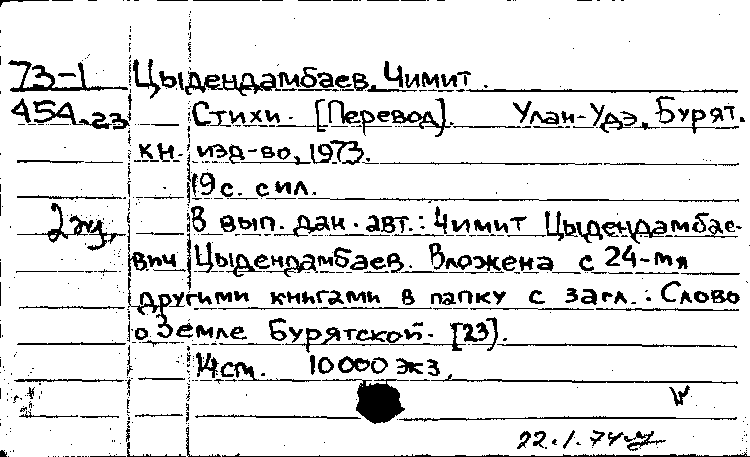 73-1 Цыдендамбаев, Чимит.
454-23 Стихи. [Перевод]. Улан-Удэ, Бурят.
кн. изд-во, 1973.
19 с. с ил.
2 экз. В вып. дан. авт.: Чимит Цыдендамбае-
вич Цыдендамбаев. Вложена с 24-мя
другими книгами в папку с загл.: Слово
о Земле Бурятской. [23].
14 см. 10 000 экз.
22.1.74